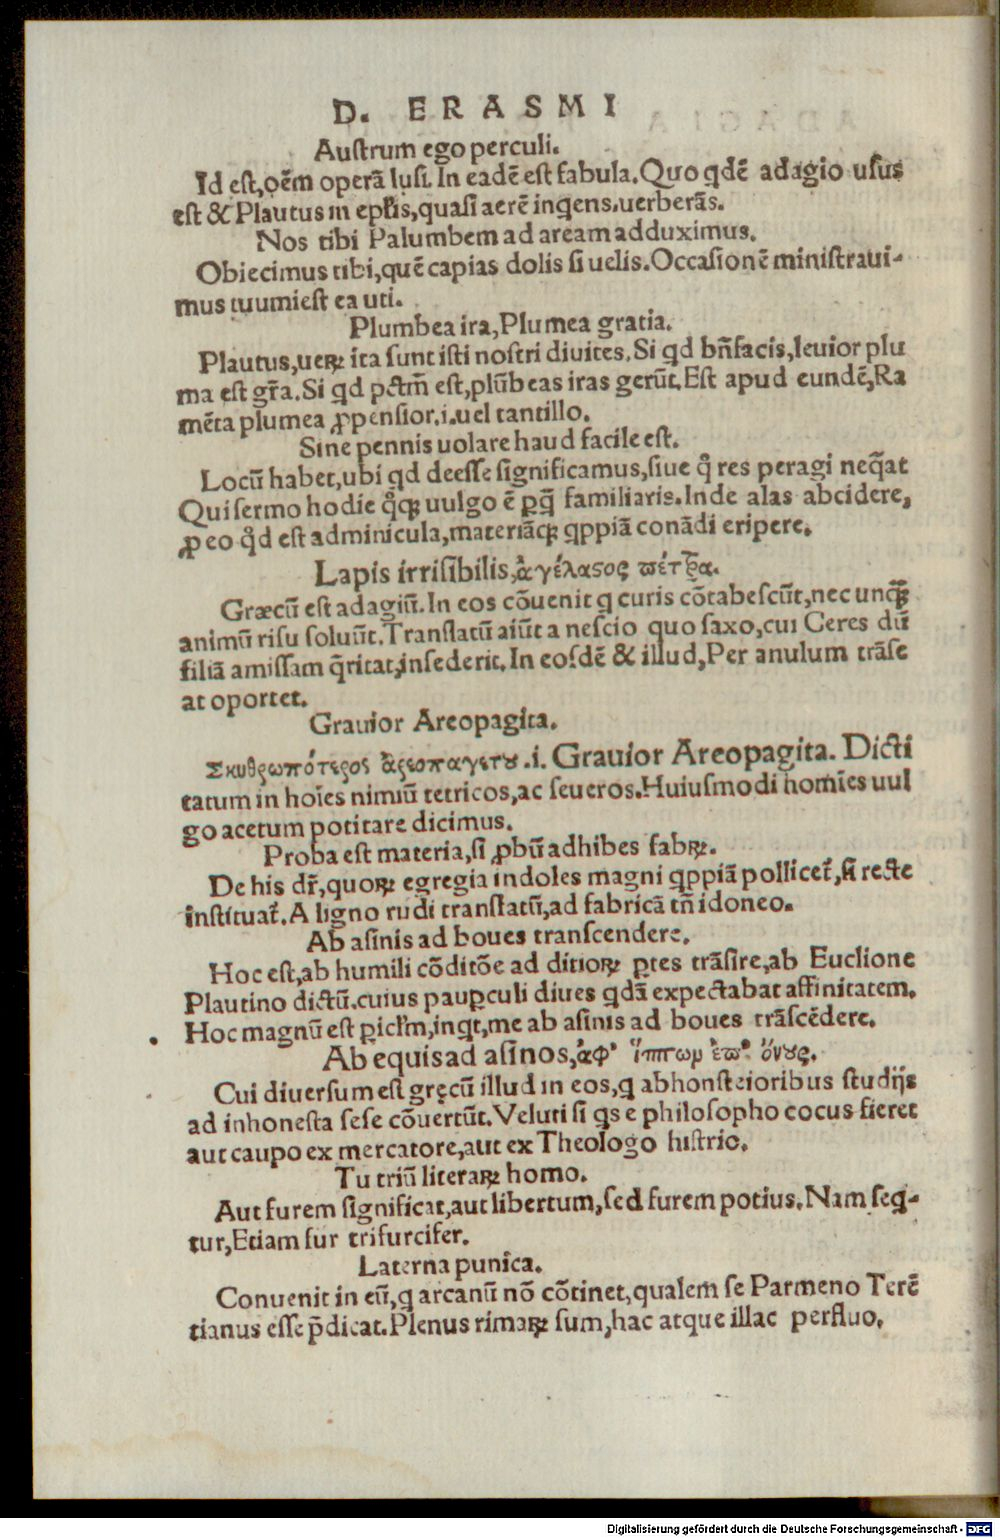 D. ERASMI
Austrum ego perculi.
Id est,oēm operā lusi. In eadē est fabula. Quo qdē adagio usus
est & Plautus in ept̄is,quasi aerē ingens.uerberās.
Nos tibi Palumbem ad aream adduximus.
Obiecimus tibi,quē capias dolis si uelis. Occasionē ministraui-
mus tuumiest ea uti.
Plumbea ira,Plumea gratia.
Plautus,ueꝝ ita sunt isti nostri diuites. Si qd bn̄facis,leuior plu
ma est gr̄a. Si qd pctm̄ est,plūbeas iras gerūt. Est apud eundē,Ra
mēta plumea ꝓpensior.i.uel tantillo.
Sine pennis uolare haud facile est.
Locū habet,ubi qd deesse significamus,siue q̊ res peragi neq̄at
Qui sermo hodie q̊qꝫ uulgo ē ꝑq̄ familiaris. Inde alas abcidere,
ꝓ eo q̊d est adminicula,materiāqꝫ qppiā conādi eripere.
Lapis irrisibilis,ἀγέλαϛος πέτρα.
Græcū est adagiū. In eos cōuenit q curis cōtabescūt,nec unq̄ꝫ
animū risu soluūt. Translatū aiūt a nescio quo saxo,cui Ceres dū
filiā amissam q̄ritat,insederit. In eosdē & illud,Per anulum trāse
at oportet.
Grauior Areopagita.
Σκυθρωπότερος ἀρεοπαγετȣ .i. Grauior Areopagita. Dicti
tatum in hoīes nimiū tetricos,ac seueros. Huiusmodi homīes uul
go acetum potitare dicimus.
Proba est materia,si ꝓbū adhibes fabꝝ.
De his dr̄,quoꝝ egregia indoles magni qppiā pollicet̄,si recte
instituat̄. A ligno rudi translatū,ad fabricā tn̄ idoneo.
Ab asinis ad boues transcendere.
Hoc est,ab humili cōditōe ad ditioꝝ ꝑtes trāsire,ab Euclione
Plautino dictū.cuius pauꝑculi diues qdā expectabat affinitatem.
Hoc magnū est ꝑicl̄m,inqt,me ab asinis ad boues trāscēdere.
Ab equis ad asinos,ἀφ' ἵππων ἐπ' ὄνȣς.
Cui diuersum est gręcū illud in eos,q abhonsteioribus studijs
ad inhonesta sese cōuertūt. Veluti si qs e philosopho cocus fieret
aut caupo ex mercatore,aut ex Theologo histrio.
Tu triū literaꝝ homo.
Aut furem significat,aut libertum,sed furem potius. Nam seq-
tur,Etiam fur trifurcifer.
Laterna punica.
Conuenit in eū,q arcanū nō cōtinet,qualem se Parmeno Terē
tianus esse p̄dicat. Plenus rimaꝝ sum,hac atque illac perfluo.
Digitalisierung gefördert durch die Deutsche Forschungsgemeinschaft - DFG